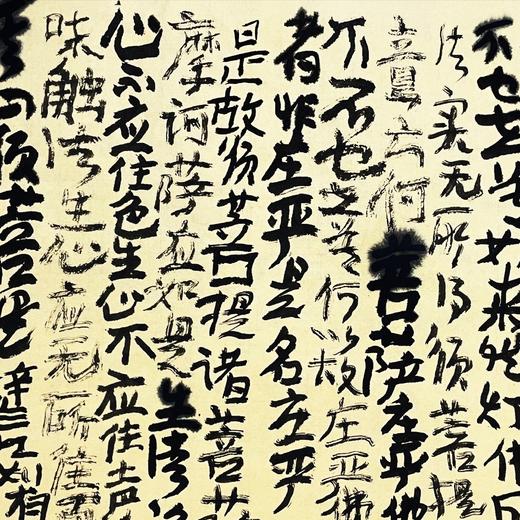 不也世尊如来然灯佛
法实无所得须菩提
意云何菩萨庄严佛
不不也世尊何以故庄严佛
者非庄严是名庄严
是故须菩提诸菩萨
摩诃萨应如是生清
心不应住色生心不应住声
味触法生心应无所住而
须菩提